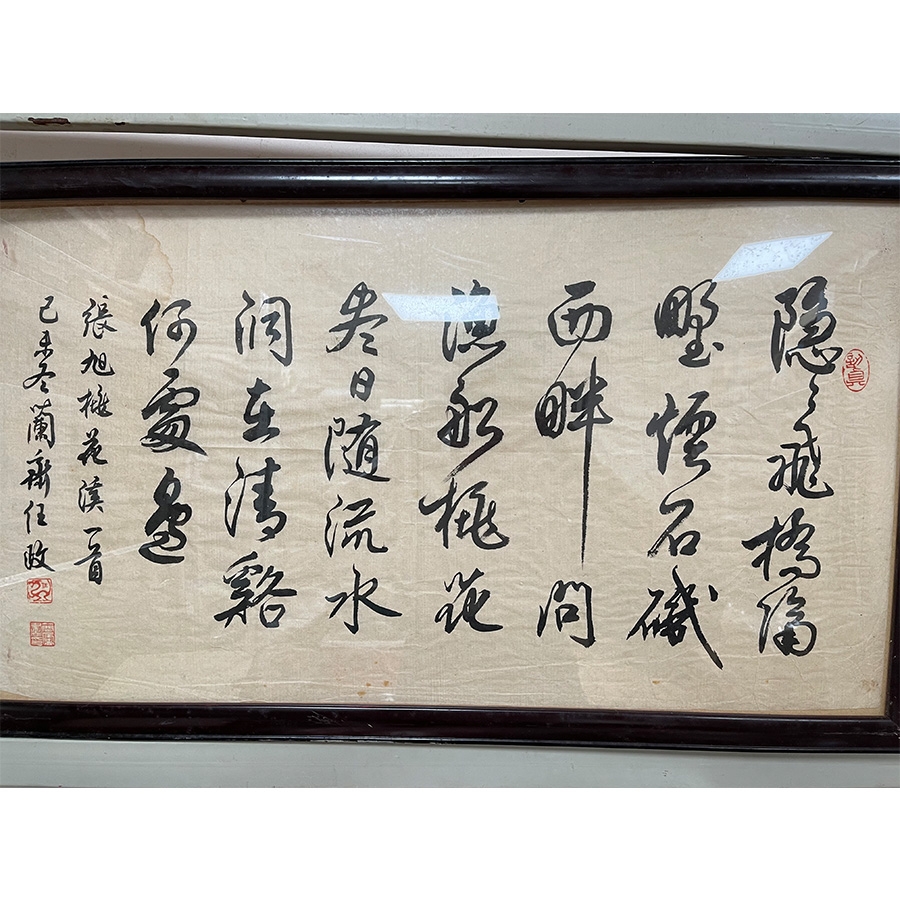 隐々飛橋隔
野煙石磯
西畔問
漁船桃花
尽日随流水
洞在清谿
何處邊
張旭桃花溪一首
己未冬蘭齋任政